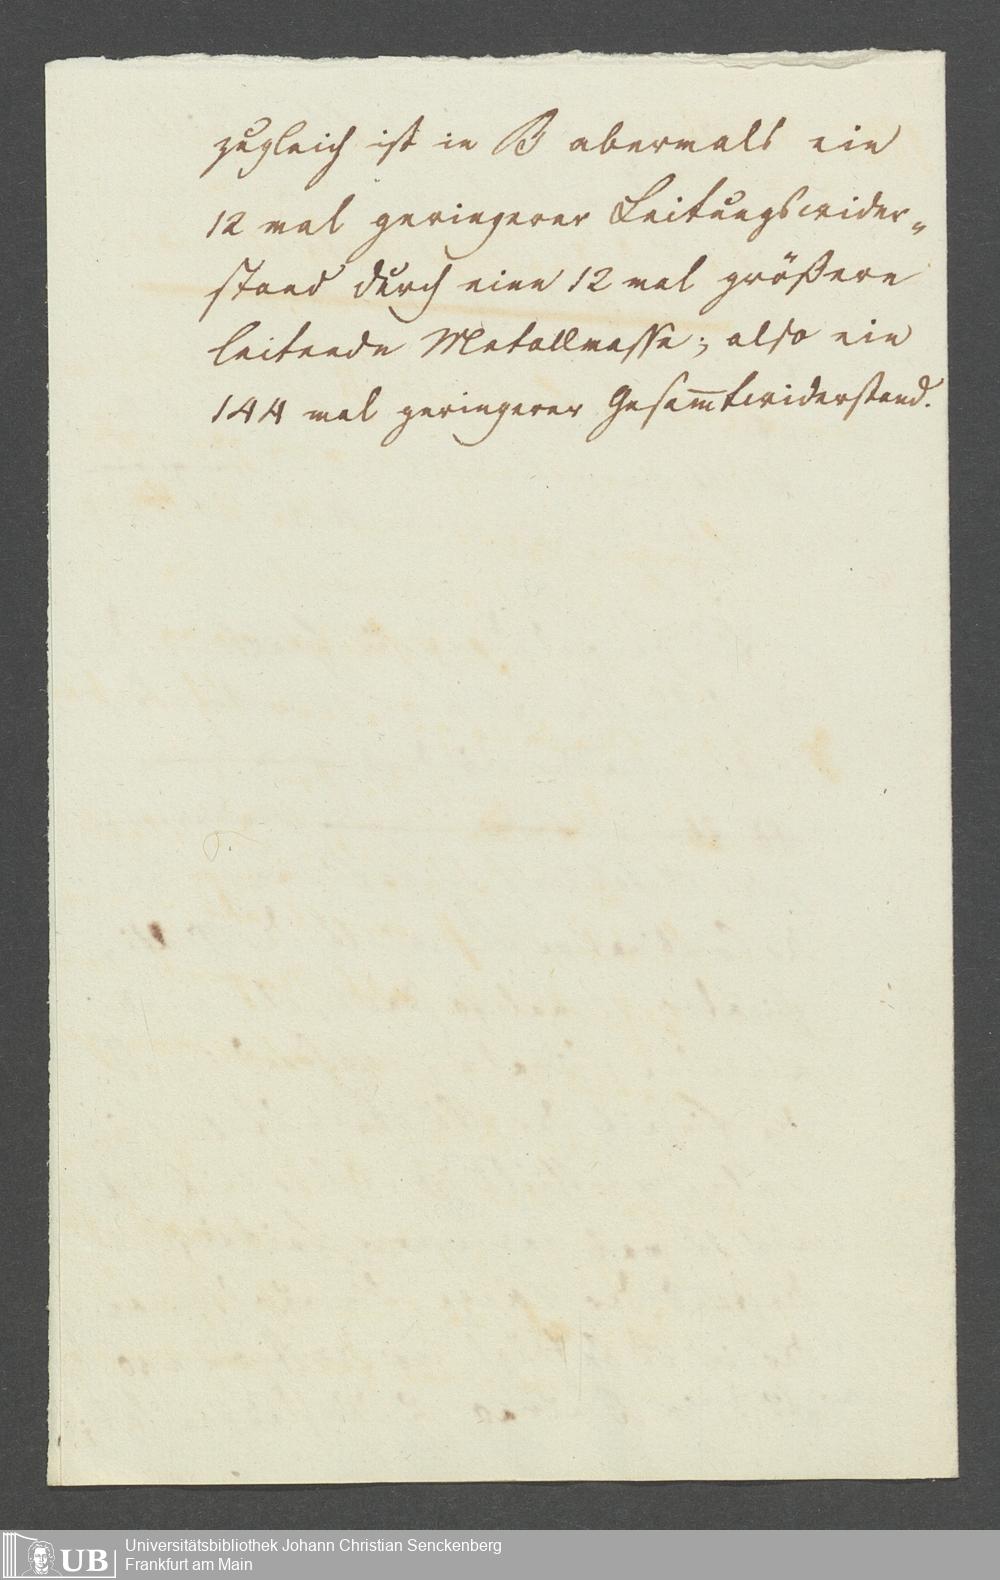 zugleich ist in B abermals ein
12 mal geringerer Leitungswider-
stand durch eine 12 mal größere
leitende Metallmasse; also ein
144 mal geringerer Gesam̅twiderstand.
UB
Universitätsbibliothek Johann Christian Senckenberg
Frankfurt am Main